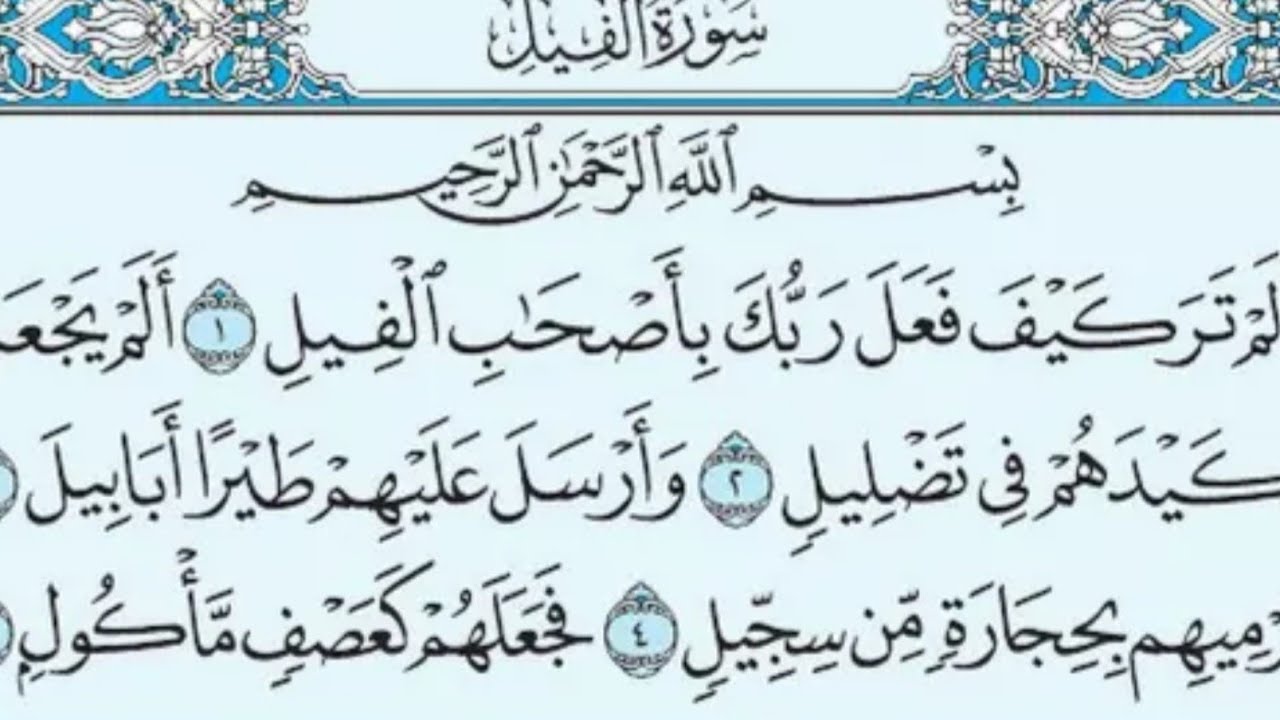 سُورَةُ الْفِيلِ
بِسْمِ ٱللَّهِ ٱلرَّحْمَٰنِ ٱلرَّحِيمِ
لَمْ تَرَ كَيْفَ فَعَلَ رَبُّكَ بِأَصْحَٰبِ ٱلْفِيلِ ١ أَلَمْ يَجْعَ
كَيْدَهُمْ فِى تَضْلِيلٍ ٢ وَأَرْسَلَ عَلَيْهِمْ طَيْرًا أَبَابِيلَ
رْمِيهِم بِحِجَارَةٍ مِّن سِجِّيلٍ ٤ فَجَعَلَهُمْ كَعَصْفٍ مَّأْكُولٍ